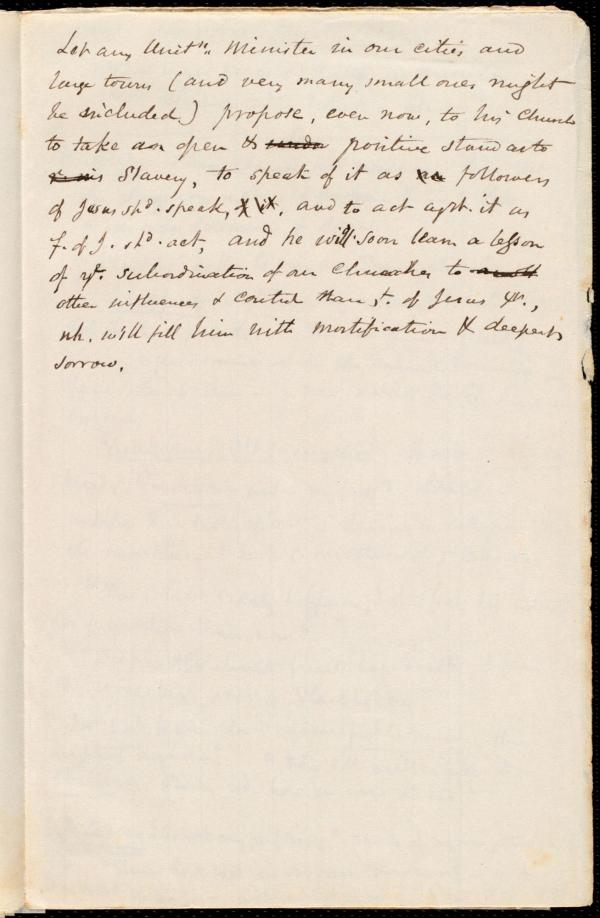 Let any Unit.n Minister in our cities and
large towns (and very many small ones might
be included) propose, even now, to his Church
to take an open & positive stand as to
Slavery, to speak of it as followers
of Jesus shd. speak, and to act agst. it as
f. of J. shd. act, and he will soon learn a lesson
of ye. subordination of our Churches to
other influences & control than yt. of Jesus Xt.,
wh. will fill him with mortification & deepest
sorrow.